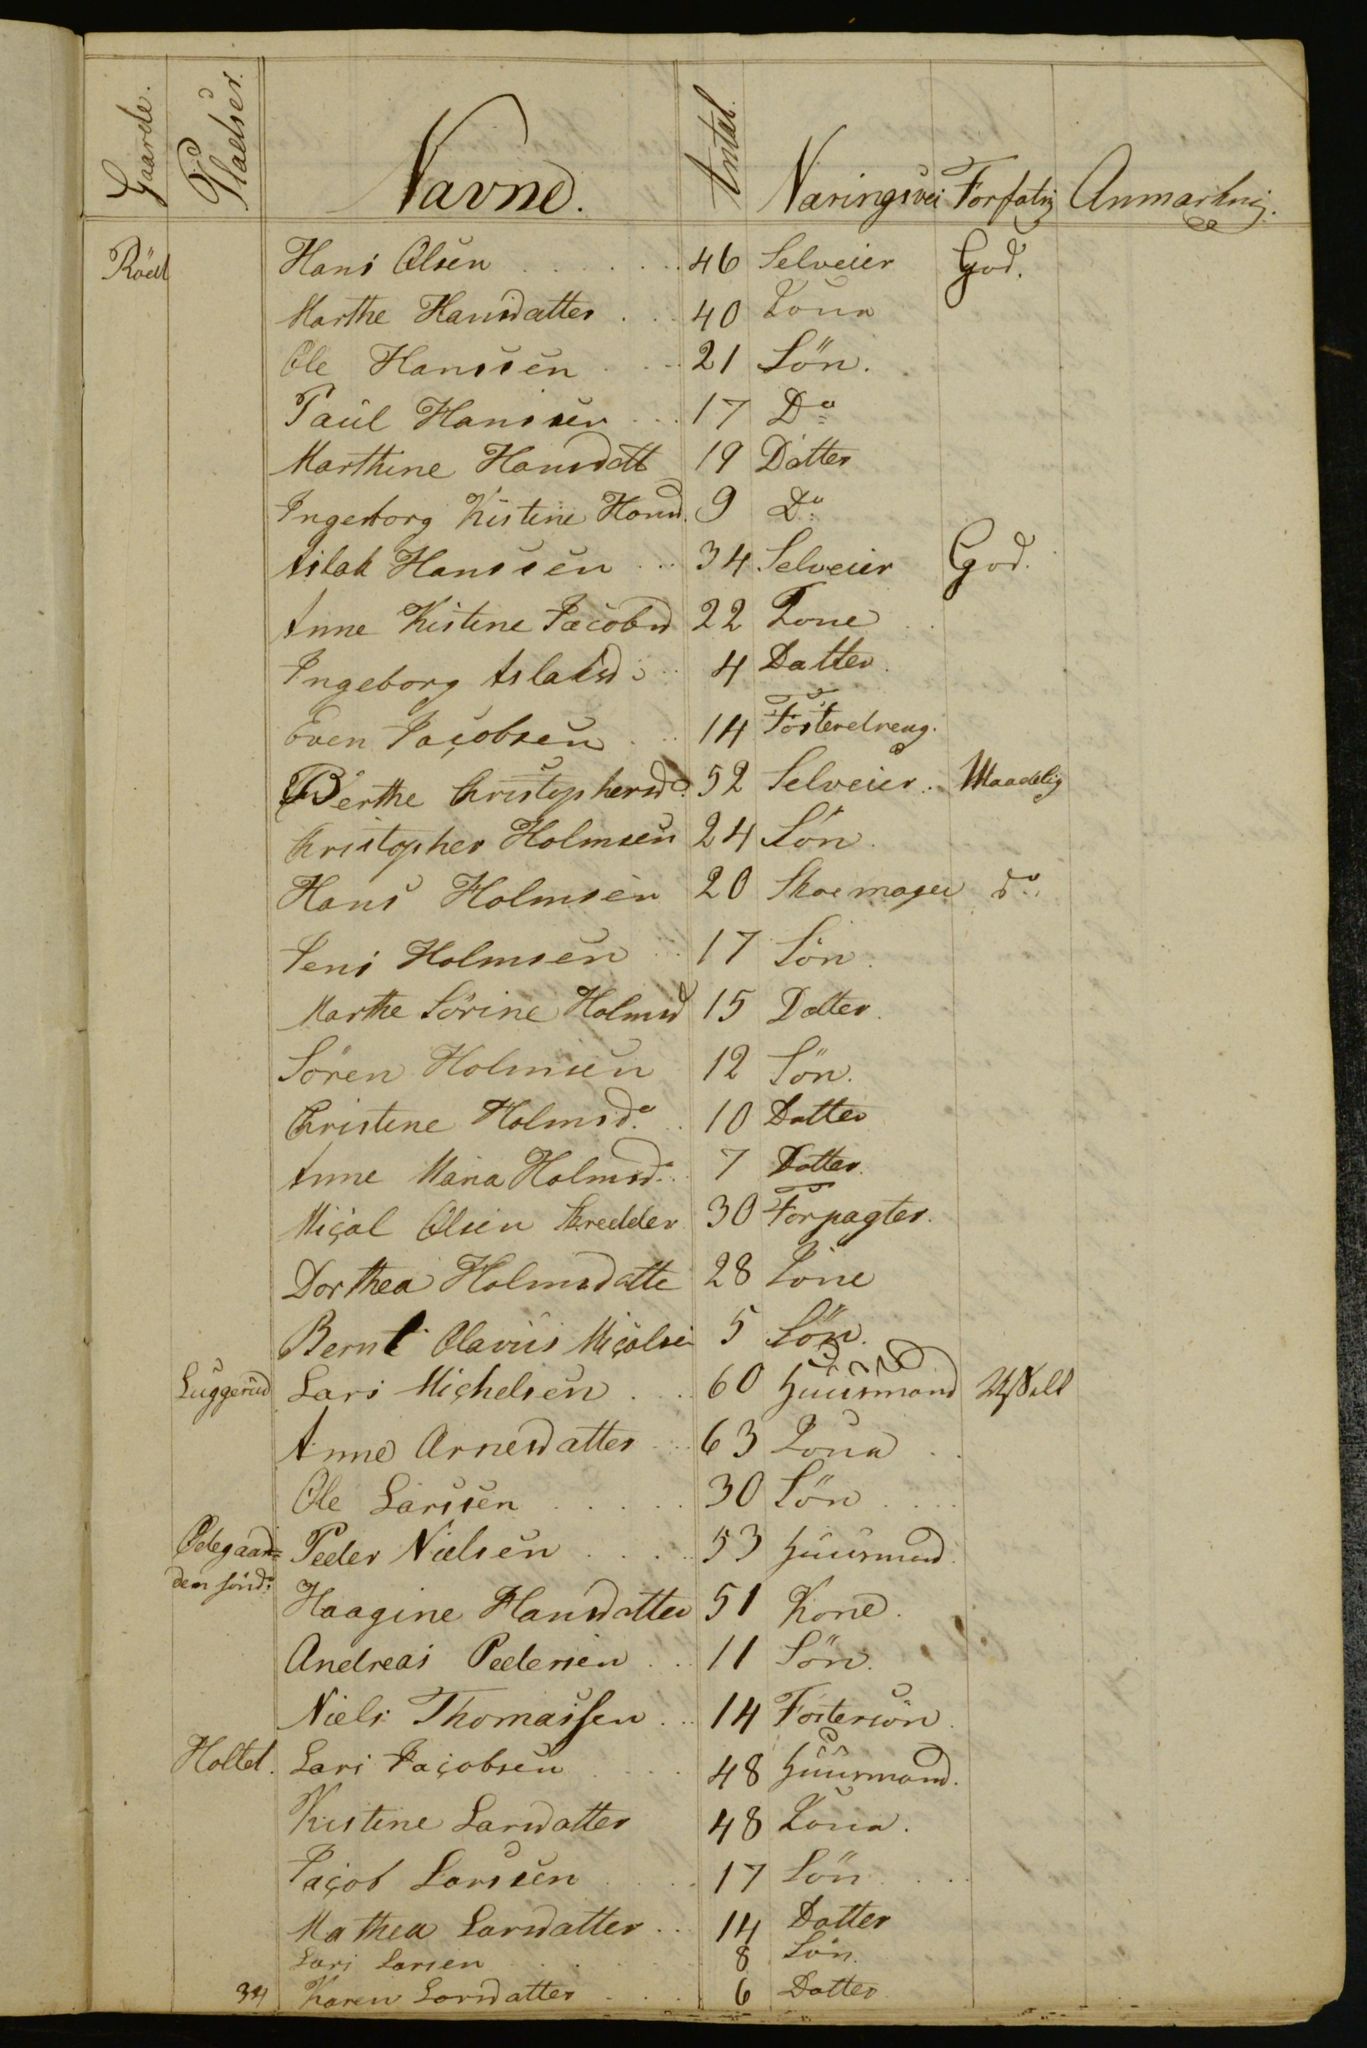 Gaarde. Pladser. Navne. Antal. Næringsvei Forfatnig Anmærknig.
Röed Hans Olsen 46 Selveier God.
Marthe Hansdatter 40 Kona
Ole Hanssen 21 Sön.
Paul Hanssen 17 Do
Marthine Hansdatt 19 Datter
Ingerborg Kistine Hansd. 9 Do
Aslak Hanssen 34 Selveier God.
Anne Kistine Jacobsd 22 Kone
Ingeborg Aslaksd 4 Datter.
Even Jaçobsen 14 Fosterdreng.
Berthe Christophersd. 52 Selveier. Maadelig
Christopher Holmsen 24 Sön.
Hans Holmsen 20 Skoemager do.
Jens Holmsen 17 Sön.
Marthe Sörine Holmsd 15 Datter.
Sören Holmsen 12 Sön.
Christine Holmsd. 10 Datter
Anne Maria Holmsd. 7 Datter.
Miçal Olsen Skredder 30 Forpagter.
Dorthea Holmsdatte 28 Kone
Bernt Olavus Miçalsen 5 Sön.
Luggerud Lars Miçhelsen 60 Huusmand
Anne Arnesdatter 63 Kona
Ole Larssen 30 Sön
Ödegaar= Peder Nielsen 53 Huusmand.
den sönd: Haagine Hansdatter 51 Kone.
Andreas Pedersen 11 Sön.
Niels Thomassen 14 Fostersön.
Holtet. Lars Jaçobsen 48 Huusmand.
Kistine Larsdatter 48 Kona.
Jaçob Larssen 17 Sön
Mathea Larsdatter 14 Datter
Lars Larsen 8 Sön.
34 Karen Larsdatter 6 Datter.